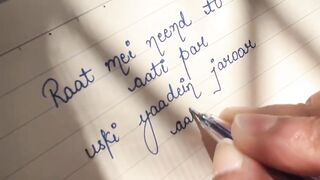 Raat mei neend to
aati par
uski yaadein jaroor
aa